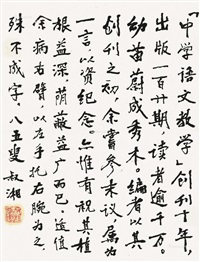 「中学语文教学」创刊十年，
出版一百廿期，读者逾千万。
幼苗蔚成秀木。编者以其
创刊之初，余尝参末议，属为
一言，以资纪念。亦惟有祝其植
根益深，荫蔽益广而已。适值
余病右臂，以左手托右腕为之，
殊不成字。八五叟 叔湘